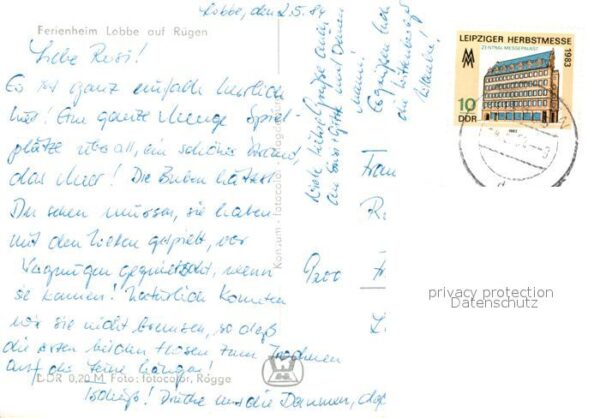 Lobbe, den 2.5.84
Ferienheim Lobbe auf Rügen
Liebe Rosi!
Es ist ganz einfach herrlich
hier! Eine ganze Menge Spiel-
plätze überall, ein schöner Strand,
das Meer! Die Buben hättest
Du sehen müssen, sie haben
mit den Wellen gespielt, vor
Vergnügen gequietscht, wenn
sie kamen! Natürlich konnten
wir sie nicht bremsen, so daß
die ersten beiden Hosen zum Trocknen
auf der Leine hängen!
Tschüß! Drücke uns die Daumen, daß
DDR 0,20 M Foto: fotocolor, Rogge
Viele liebe Grüße auch
an und Deinen
Mann!
Es grüßen Dich
die
Konsum - fotocolor Magdeburg
Frau
R.
9200 Fr
L.
LEIPZIGER HERBSTMESSE
1983
ZENTRAL-MESSEPALAST
10
DDR
1983
privacy protection
Datenschutz